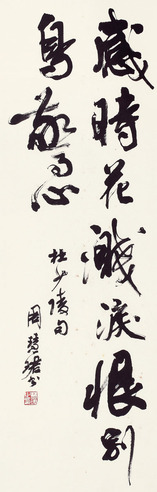 感時花濺淚恨別
鳥驚心
杜少陵句
周慧珺書